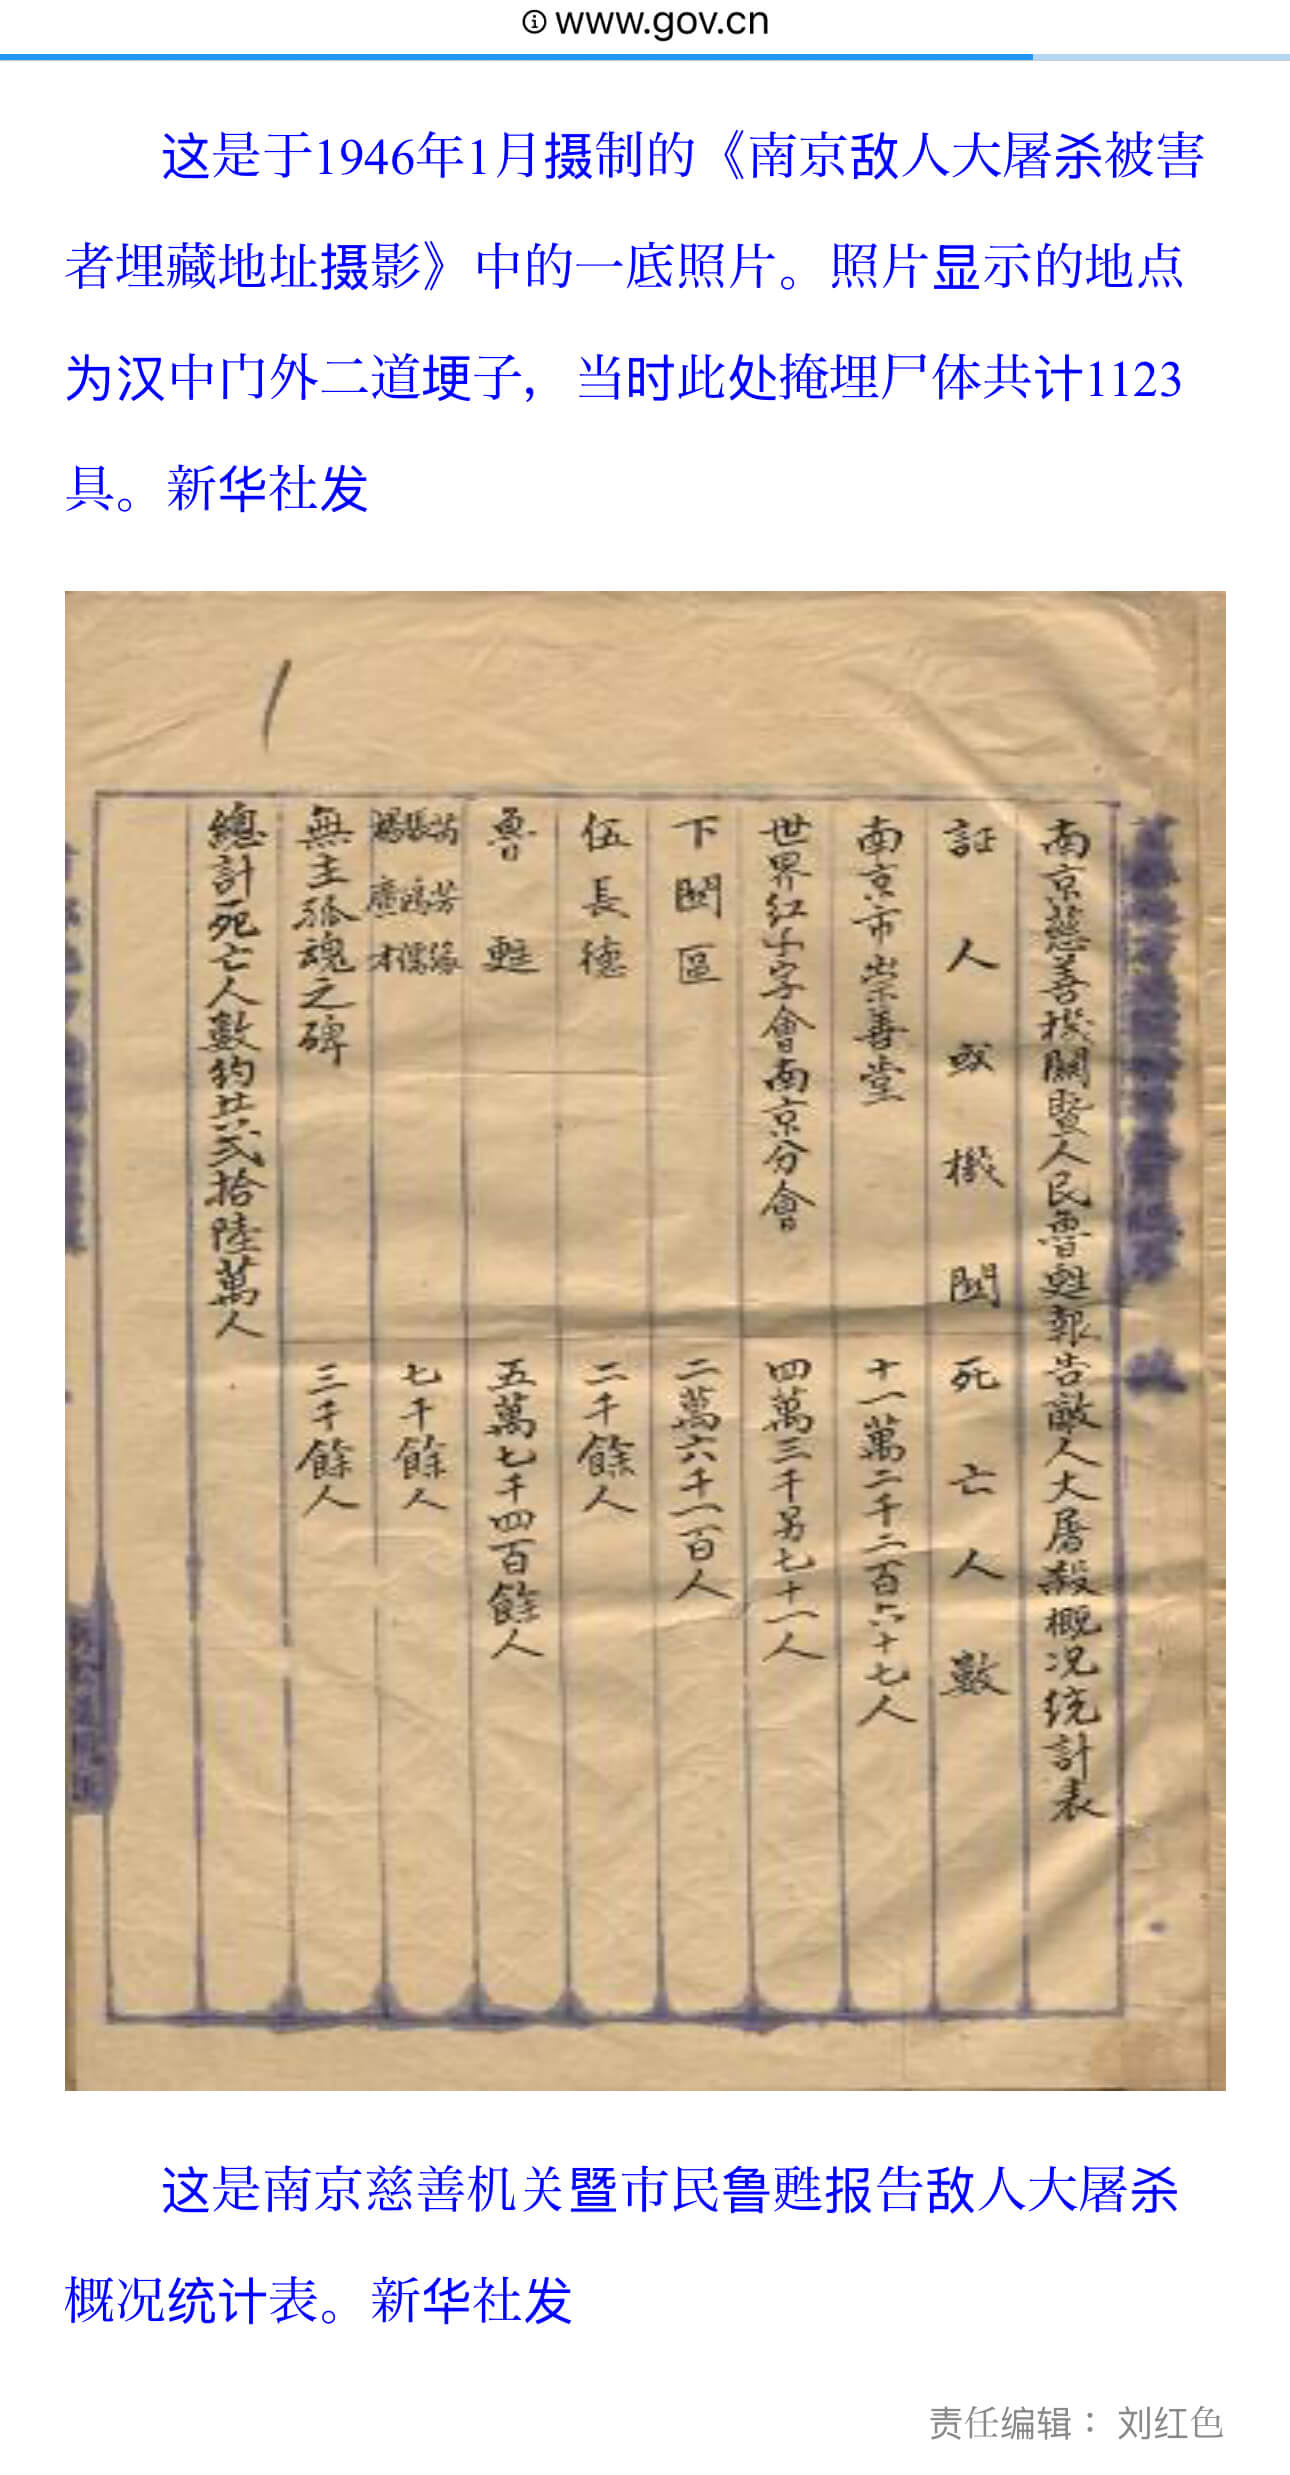 www.gov.cn
这是于1946年1月摄制的《南京敌人大屠杀被害
者埋藏地址摄影》中的一底照片。照片显示的地点
为汉中门外二道埂子，当时此处掩埋尸体共计1123
具。新华社发
南京慈善機關暨人民魯甦報告敵人大屠殺概况統計表
証人或機関 死亡人數
南京市崇善堂 十一萬二千二百六十七人
世界紅卐字會南京分會 四萬三千另七十一人
下関區 二萬六千一百人
伍長德 二千餘人
魯甦 五萬七千四百餘人
芮芳缘 張鴻儒 楊廣才 七千餘人
無主孤魂之碑 三千餘人
總計死亡人數約共弍拾陸萬人
这是南京慈善机关暨市民鲁甦报告敌人大屠杀
概况统计表。新华社发
责任编辑： 刘红色